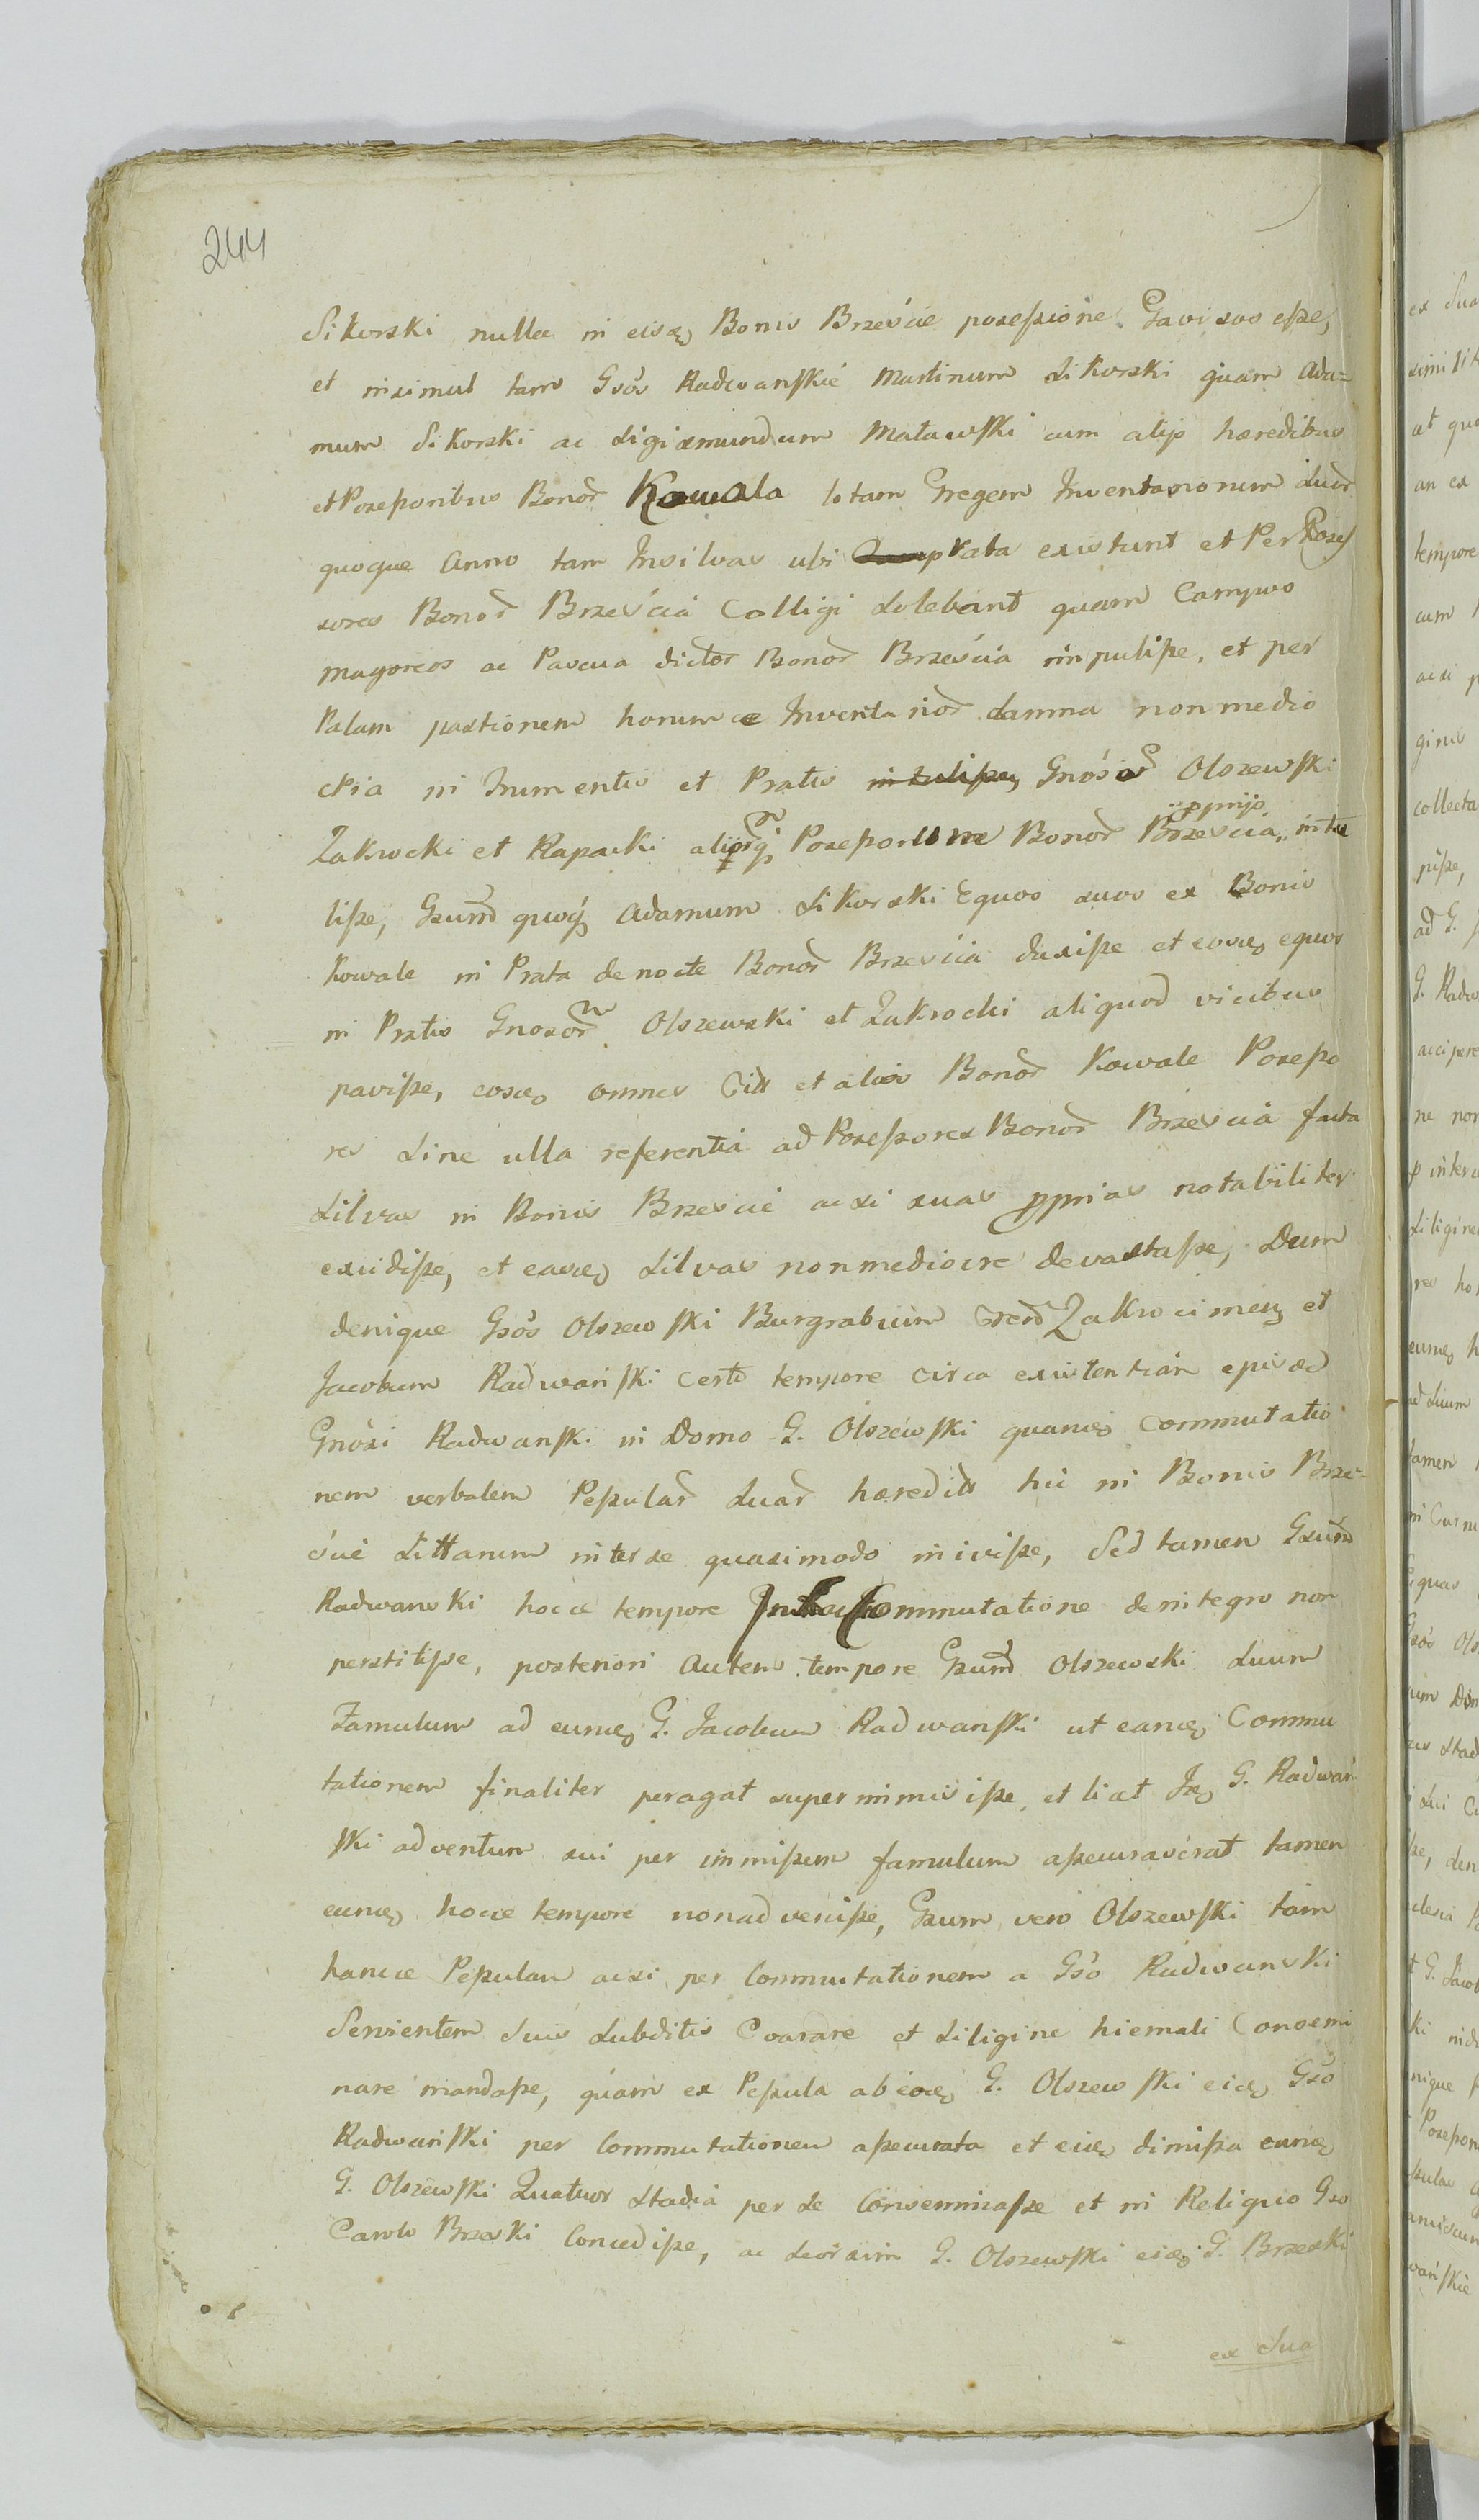 244
Sikorski nulla in eisdę Bonis Brzeście posessione Gavisos esse,
et insimul tam Gsos Radwanskie Martinum Sikorski quam Ada=
mum Sikorski ac Sigismundum Matawski cum alijs hæredibus
et Posessoribus Bonor Kowala totam Gregem Inventariorum Suor
quoque Anno tam Insilvas ubi Prata existunt et Per Poses
sores Bonor Brześcia Colligi Solebant quam Campos
magores ac Pascua dictor Bonor Brześcia impulisse, et per
talam pastionem horumce Inventarior damna non medio
cria in Frumentis et Pratis intulisse, Gnosor Olszewski
Zakrocki et Rapacki aliorq Posessorum Bonor Brześcia, pprijs intu
lisse, Gsum quoq Adamum Sikorski Equos suos ex Bonis
Kowale in Prata de nocte Bonor Brześcia duxisse et eosdę equos
in Pratis Gnosor Olszewski et Zakrocki aliquod vicibus
pavisse, eosdę omnes Citt et alios Bonor Kowale Posesso
res Sine ulla referentia ad Posessores Bonor Brzescia facta
Silvas in Bonis Brzescie acsi suas pprias notabiliter
excidisse, et easdę Silvas nonmediocre devastasse, Dum
denique Gsos Olszewski Burgrabium Zakrocimen et
Jacobum Radwanski certo tempore circa existentiam
Gnosi Radwanski in Domo G. Olszewski quandę Commutatio
nem verbalem Pessular Suar hæredit hic in Bonis Brze=
ście Sittarum inter se quasimodo inivisse, Sed tamen Gsum
Radwanski hocce tempore Commutatione de integro non
perstitisse, posteriori autem tempore Gsum Olszewski Suum
Famulum ad eumdę G. Jacobum Radwanski ut eandę Commu
tationem finaliter peragat superimmisisse, et licet Idę G. Radwan
ski adventum sui per immissum famulum assecuraverat tamen
eumdę hocce tempore nonadvenisse, Gsum vero Olszewski tam
hancce Pessulam acsi per Commutationem a Gso Radwanski
Servientem Suis Subditis Coarare et Siligine hiemali Consemi
nare mandasse, quam ex Pessula ab eodę G. Olszewski eidę Gso
Radwanski per Commutationem assecurata et eidę dimissa eumdę
G. Olszewski Quatuor Stadia per Se Conseminasse et in Reliquo Gso
Carolo Brzeski Concedisse, ac Seorsim G. Olszewski eidę G. Brzeski
ex Sua